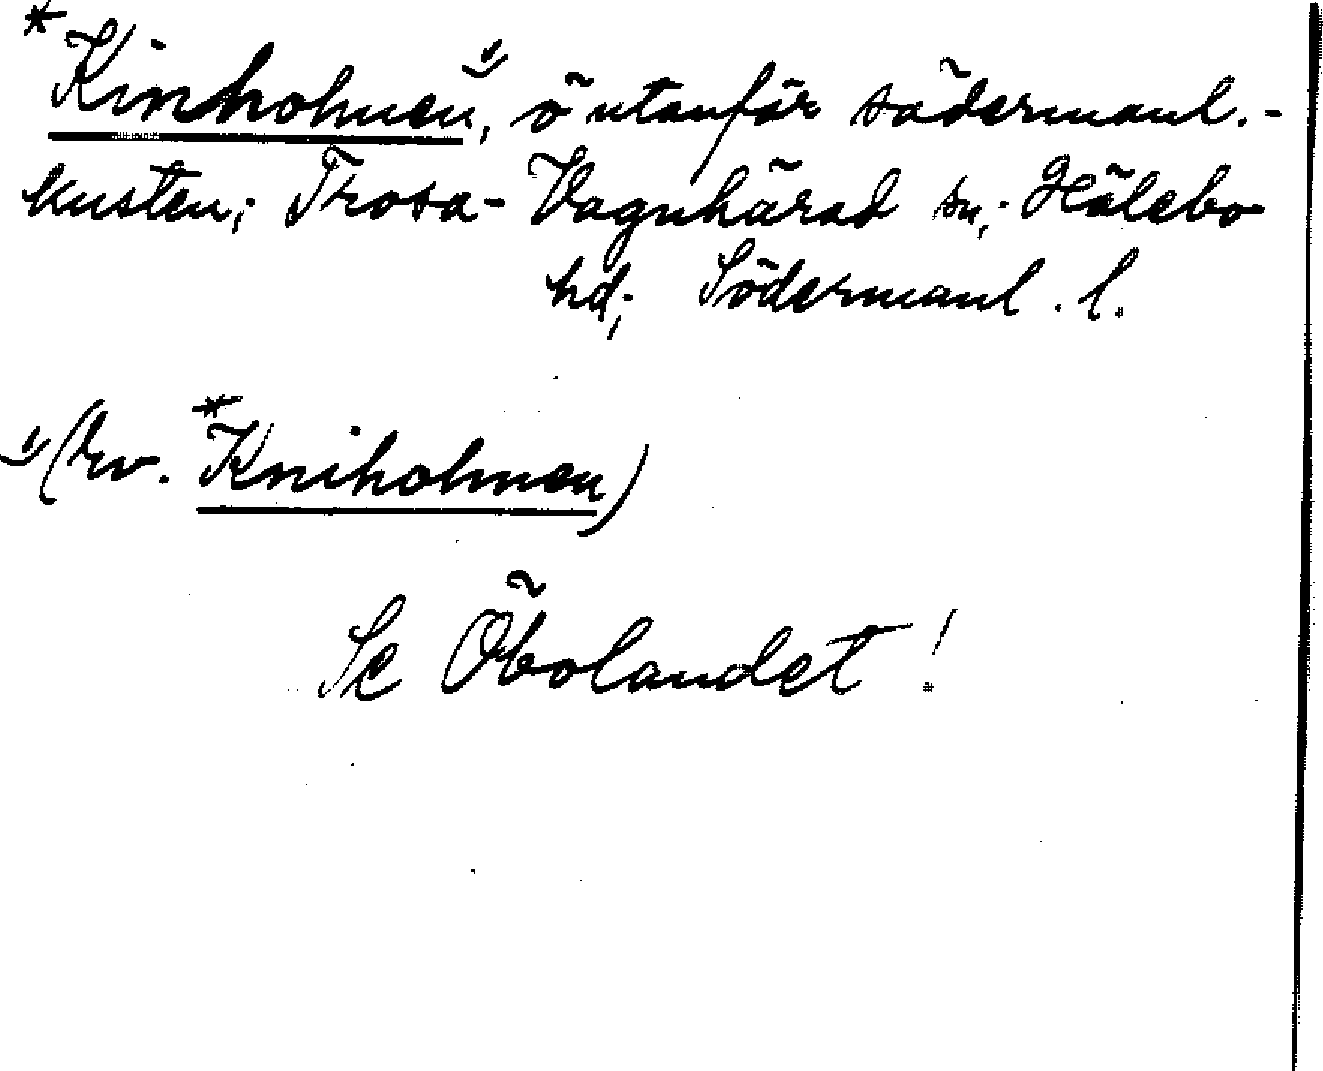 *Kinholmen, ö utanför södermanl.-
kusten; Trosa-Vagnhärad sn; Hölebo
hd; Södermanl. l.
(kv. *Kniholmen)
Se Öbolandet!